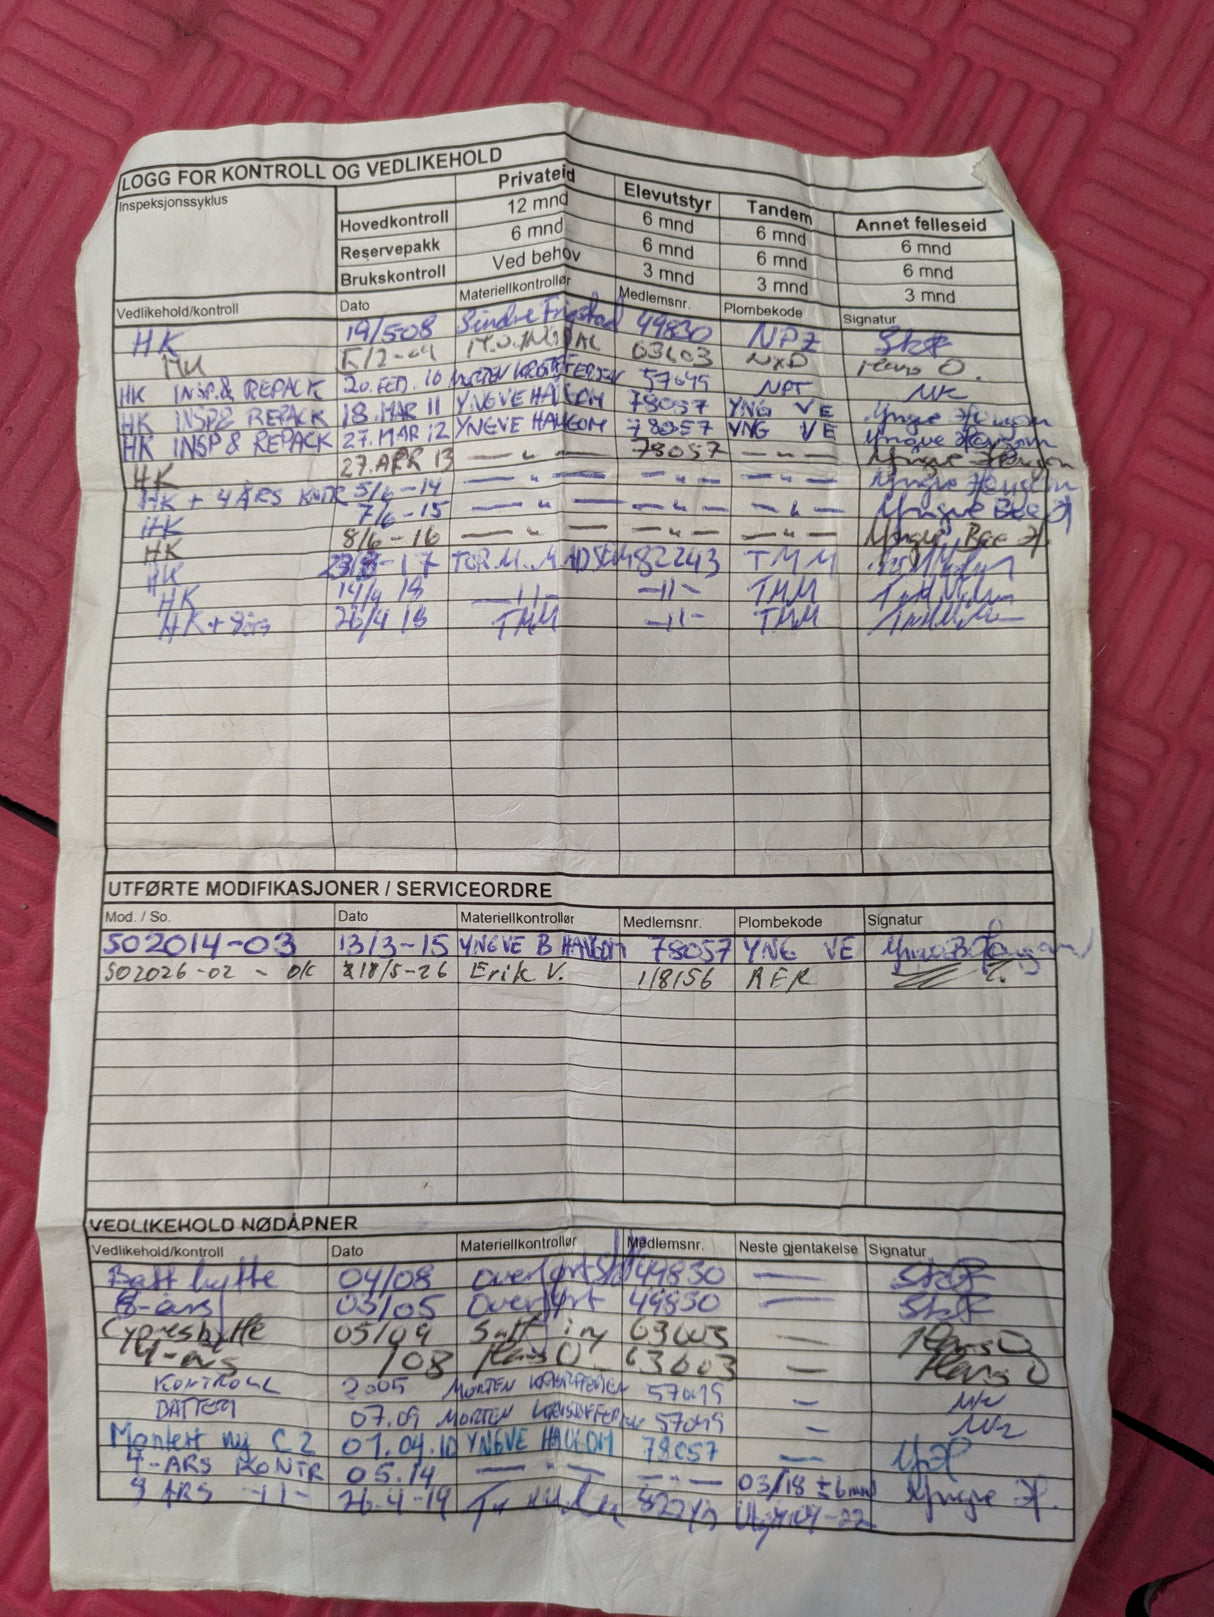 LOGG FOR KONTROLL OG VEDLIKEHOLD
Inspeksjonssyklus Privateid Elevutstyr Tandem Annet felleseid
Hovedkontroll 12 mnd 6 mnd 6 mnd 6 mnd
Reservepakk 6 mnd 6 mnd 6 mnd 6 mnd
Brukskontroll Ved behov 3 mnd 3 mnd 3 mnd
Vedlikehold/kontroll Dato Materiellkontrollør Medlemsnr. Plombekode Signatur
HK 19/508 Sindre 49830 NPZ
63603 NXD Hans O.
HK INSP & REPACK 20. FEB. 10 MORTEN 57045 NPT MK
HK INSP & REPACK 18. MAR 11 YNGVE HAUGOM 78057 YNG VE Yngve Haugom
HK INSP & REPACK 27. MAR 12 YNGVE HAUGOM 78057 YNG VE Yngve Haugom
HK 27. APR 13 — " — 78057 — " — Yngve Haugom
HK + 4 ÅRS KNTR 5/6-14 — " — — " — — " — Yngve Haugom
HK 7/6-15 — " — — " — — " — Yngve Bee H
HK 8/6-16 — " — — " — — " — Yngve Bee H.
HK -17 TOR M. MADSEN 82243 TMM
HK 14/4 18 —11— —11— TMM
HK + 26/4 TMM —11— TMM
UTFØRTE MODIFIKASJONER / SERVICEORDRE
Mod. / So. Dato Materiellkontrollør Medlemsnr. Plombekode Signatur
SO2014-03 13/3-15 YNGVE B HAUGOM 78057 YNG VE
SO2026-02 - OK 18/5-26 Erik V. 118156 RFR
VEDLIKEHOLD NØDÅPNER
Vedlikehold/kontroll Dato Materiellkontrollør Medlemsnr. Neste gjentakelse Signatur
Batt bytte 04/08 Overført 49830 —
8-års 03/05 Overført 49830 —
Cypresbytte 05/09 Satt inn 63603 — Hans O
4-års /08 Hans O 63603 — Hans O
KONTROLL 2005 MORTEN KRISTOFFERSEN 57045 — MK
BATTERI 07.09 MORTEN KRISTOFFERSEN 57045 — MK
Montert ny C2 01.04.10 YNGVE HAUGOM 78057 YH
4-ÅRS KONTR 05.14 — " — — " — 03/18 ±6mnd Yngve H.
26.4-19